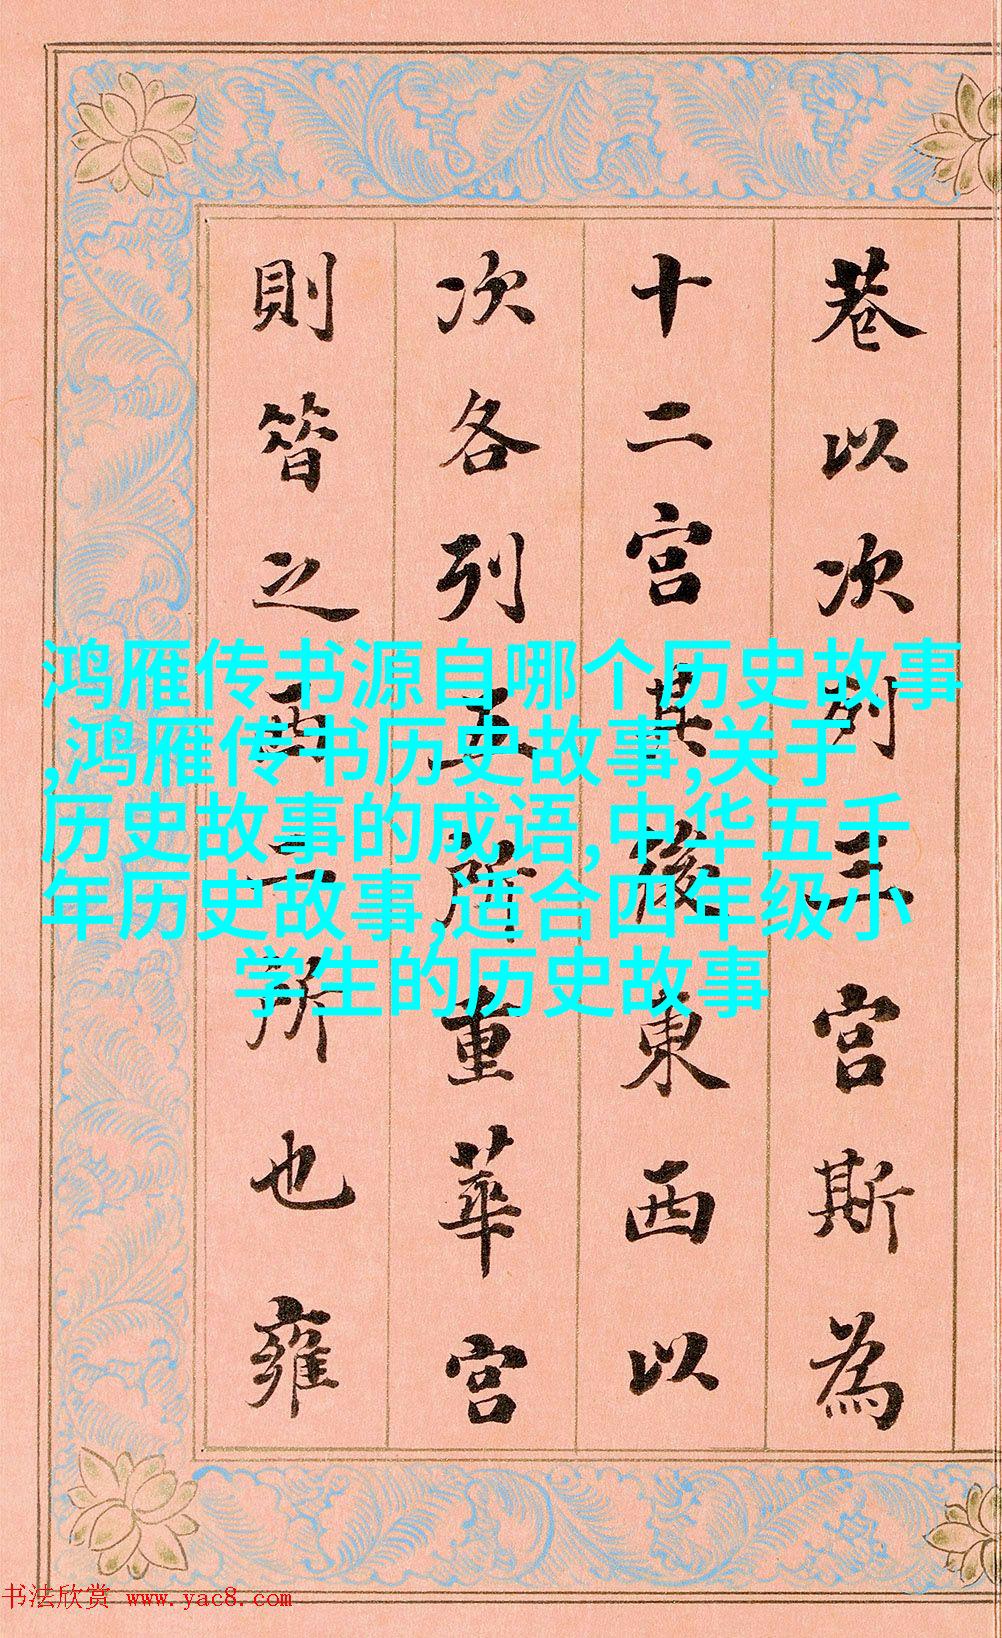 巷以次列三宮斯為
十二宮其後東西以
次各列五所重華宮
則昔之西二所也雍
鸿雁传书源自哪个历史故事
,鸿雁传书历史故事,关于
历史故事的成语,中华五千
年历史故事,适合四年级小
学生的历史故事
书法欣赏 www.yac8.com